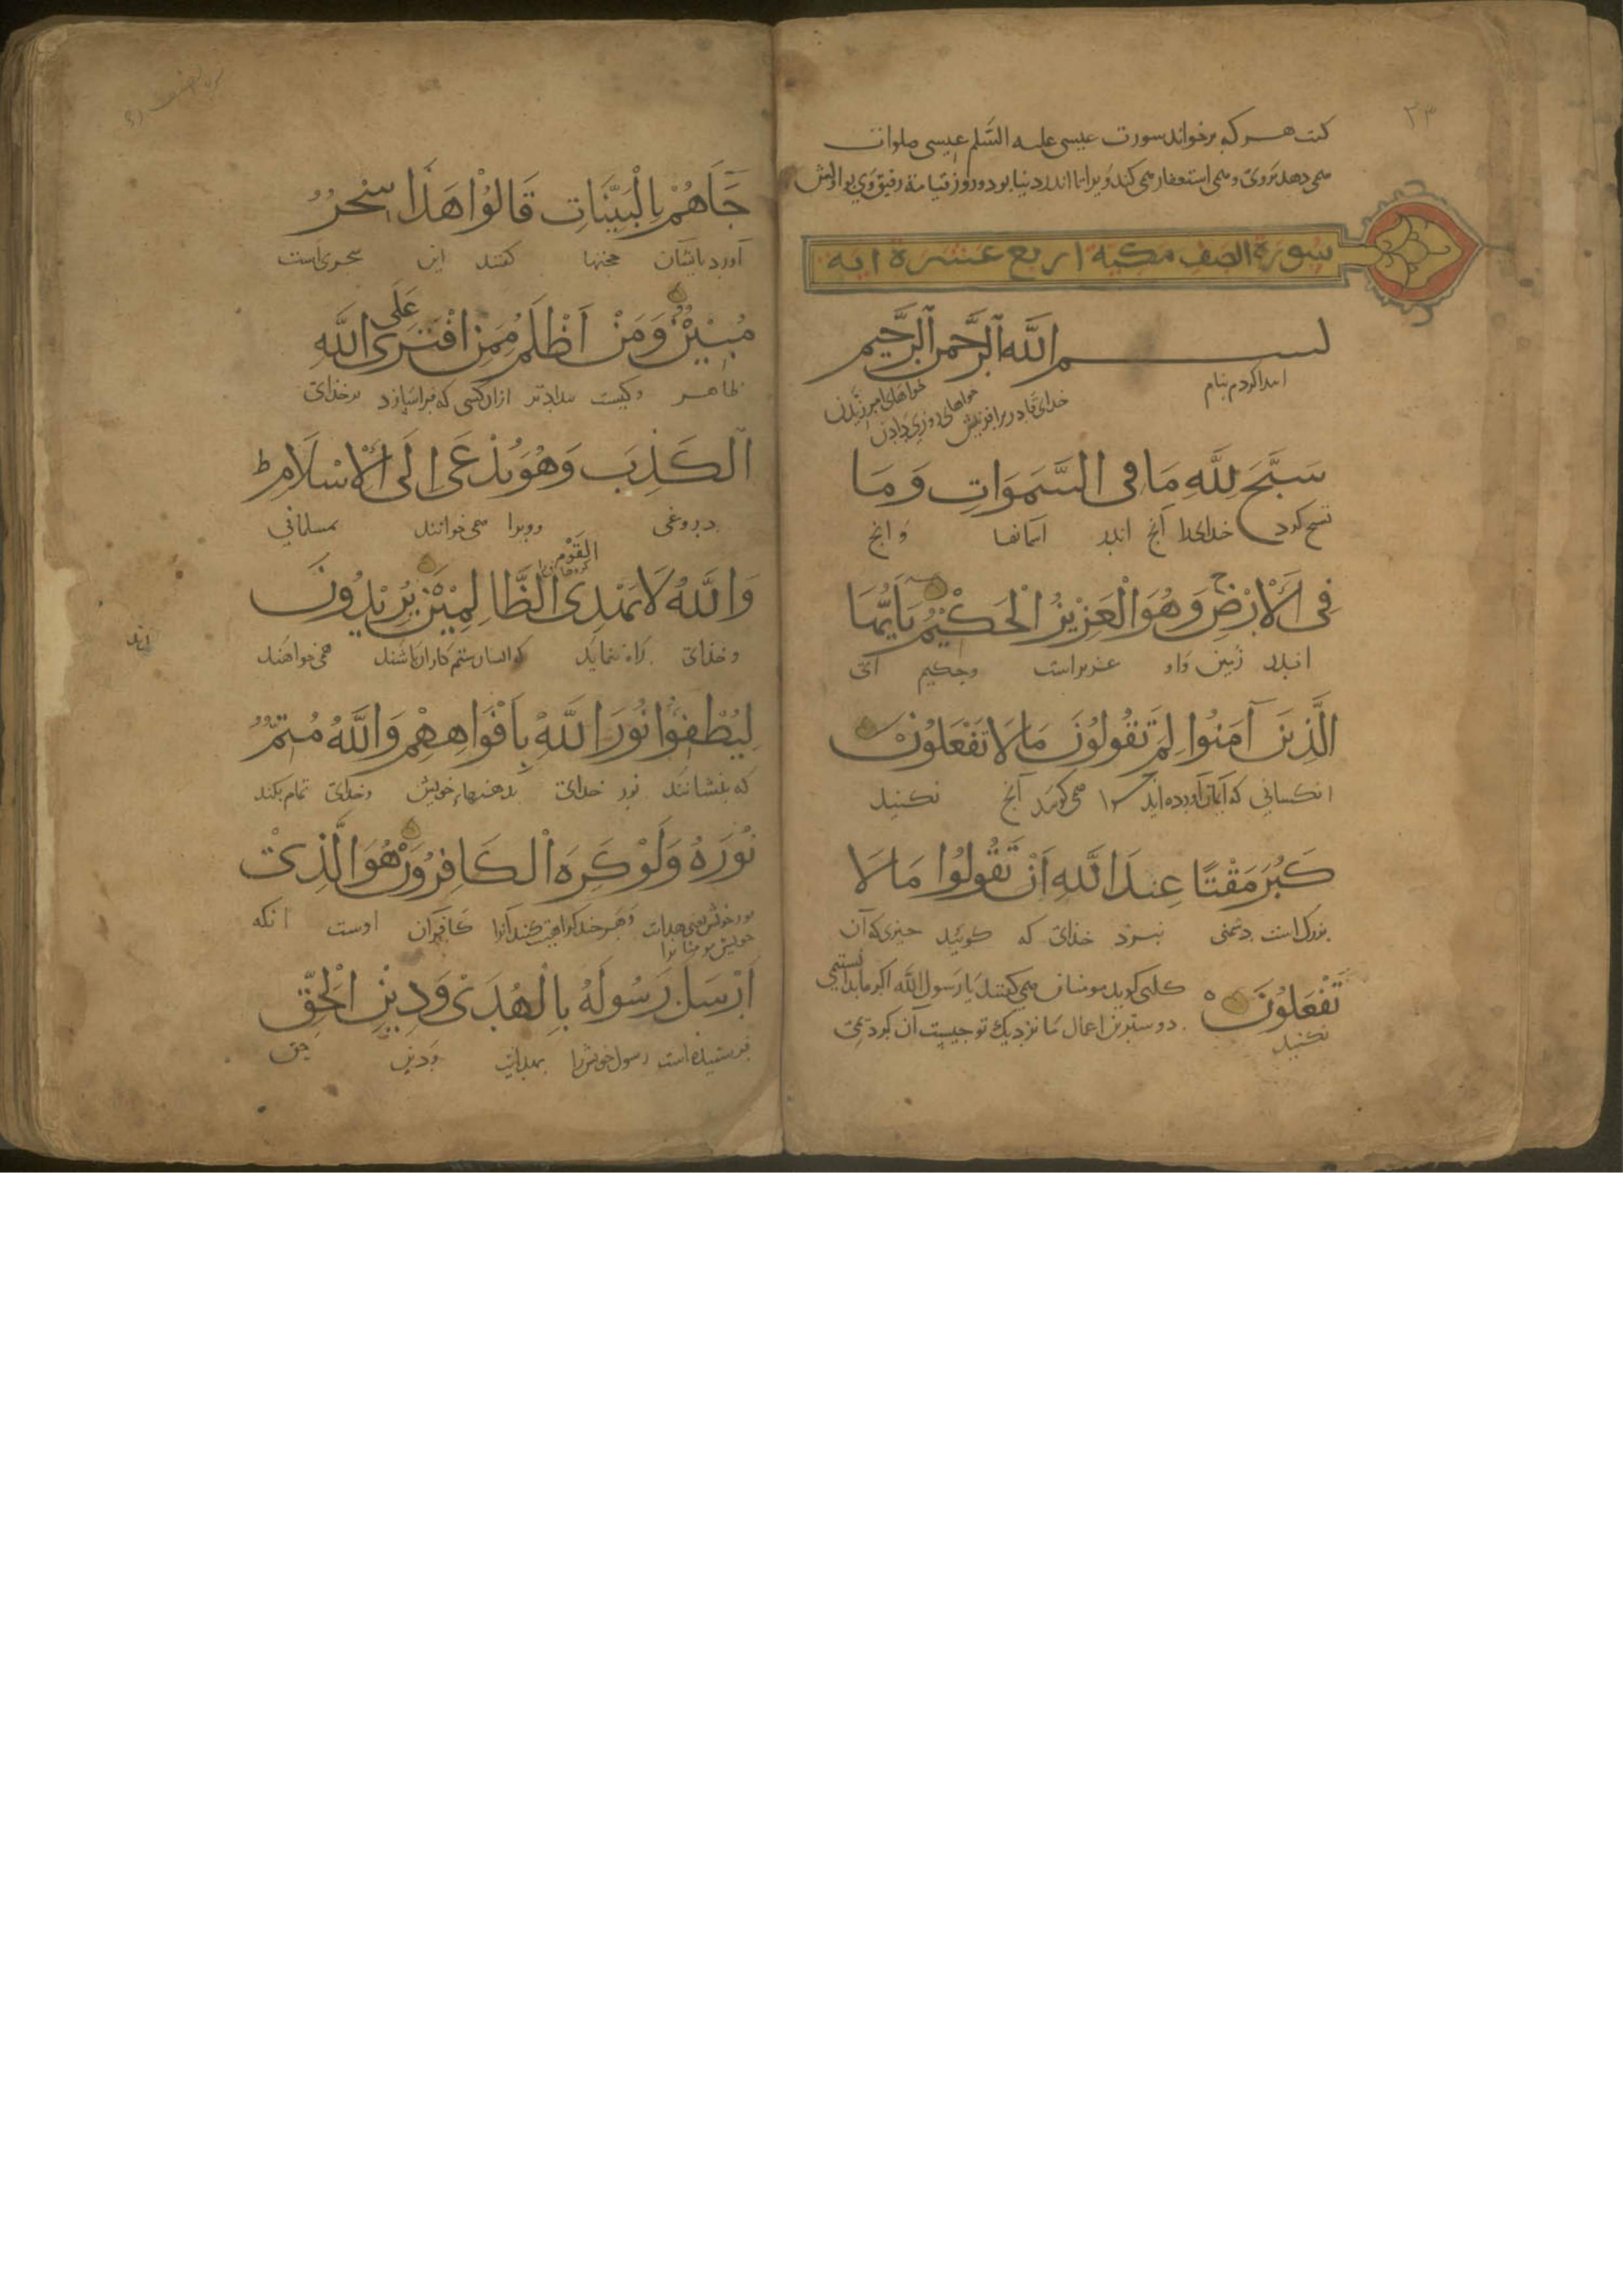 ۲۳
کفت هر که برخواند سورت عیسی علیه السّلم عیسی صلوات
می دهد بروی و می استغفار می کند ویرا تا اندر دنیا بود و روز قیامة رفیق وی بود
سورة الصف مکیة اربع عشرة ایة
بسم الله الرَّحمن الرَّحيم
ابتدا کردم بنام خدای قادر برافرینش خواهای روزی دادن خواهای امرزیدن
سَبَّحَ لِلَّهِ مَا فِى السَّمَوَاتِ وَمَا
تسبیح کرد خدایرا آنچ اندر آسمانها وانچ
فِى الْأَرْضِ وَهُوَ الْعَزِيْزُ الْحَكِيْمُ يَايُّهَا
اندر زمین واو عزیز است وحکیم ای
الَّذِينَ آمَنُوا لِمَ تَقُولُونَ مَا لَا تَفْعَلُوْنَ
انکسانی که ایمان آورده اید چرا می کویید آنچ نکنید
كَبُرَ مَقْتًا عِندَ اللَّهِ اَنْ تَقُولُوْا مَا لَا
بزرک است دشمنی نزد خدای که کوئید چیزی که آن
تَفْعَلُوْنَ
نکنید
کلبی کوید مومنان می کفتند یا رسول الله اکر ما بدانستیمی
دوسترین اعمال ما نزدیک تو چیست آن کردیمی
جَآهُمْ بِالْبَيِّنَاتِ قَالُوْا هَذَا سِحْرٌ
آورد بایشان حجتها کفتند این سحری است
مُبِيْنٌ وَمَنْ اَظْلَمُ مِمَّنِ افْتَرَى عَلَى اللَّهِ
ظاهر وکیست بیدادتر ازان کسی که فراسازد بر خدای
الْكَذِبَ وَهُوَ يُدْعَى اِلَى الْاِسْلَامِ ط
دروغی وویرا می خوانند بمسلمانی
وَاللَّهُ لَا يَهْدِى الْقَوْمَ الظَّالِمِيْنَ يُرِيْدُونَ
وخدای راه ننماید کروهانی را که ایشان ستم کاران باشند می خواهند
لِيُطْفِئُوْا نُوْرَ اللَّهِ بِاَفْوَاهِهِمْ وَاللَّهُ مُتِمُّ
که بنشانند نور خدای بدهنهاء خویش وخدای تمام بکند
نُوْرَهُ وَلَوْ كَرِهَ الْكَافِرُوْنَ هُوَ الَّذِىْ
نور خویش یعنی هدایت خویش مومنانرا وهرچند کراهیت کنند آنرا کافران اوست انکه
اَرْسَلَ رَسُولَهُ بِالْهُدَىْ وَدِيْنِ الْحَقِّ
فرستیده است رسول خویش را بهدایت ودین حق